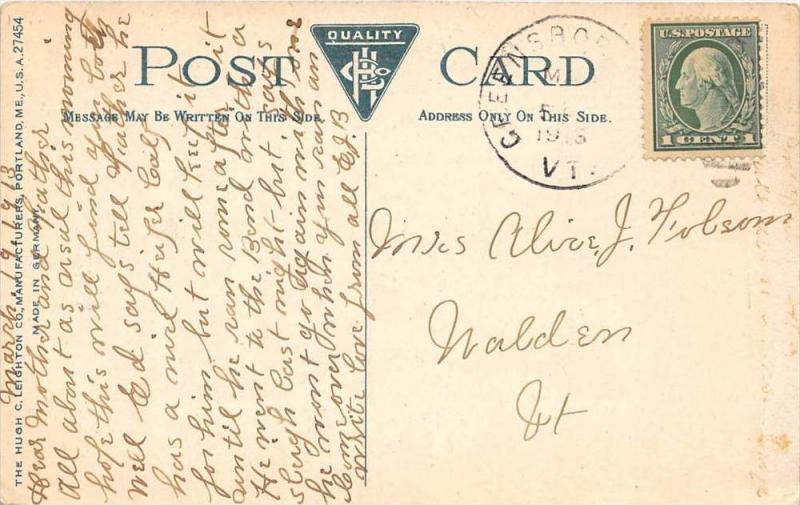 THE HUGH C. LEIGHTON CO., MANUFACTURERS, PORTLAND, ME., U.S.A. 27454
MADE IN GERMANY
QUALITY
POST CARD
MESSAGE MAY BE WRITTEN ON THIS SIDE.
ADDRESS ONLY ON THIS SIDE.
GREENSBORO
1913
VT.
U.S. POSTAGE
1 CENT 1
March, 19 1913
Dear Mother and Father
All about as usal this morning
hope this will find you both
Well Ed says tell Father he
has a nice Heifer Calf
for him, but will keep it
until he can come after it
He went to the Bend with a
sleigh last night - but says
he must go again with one
Come over when you can an
write love from all E.J.B
Mrs Alice. J. Folsom
Walden
Vt